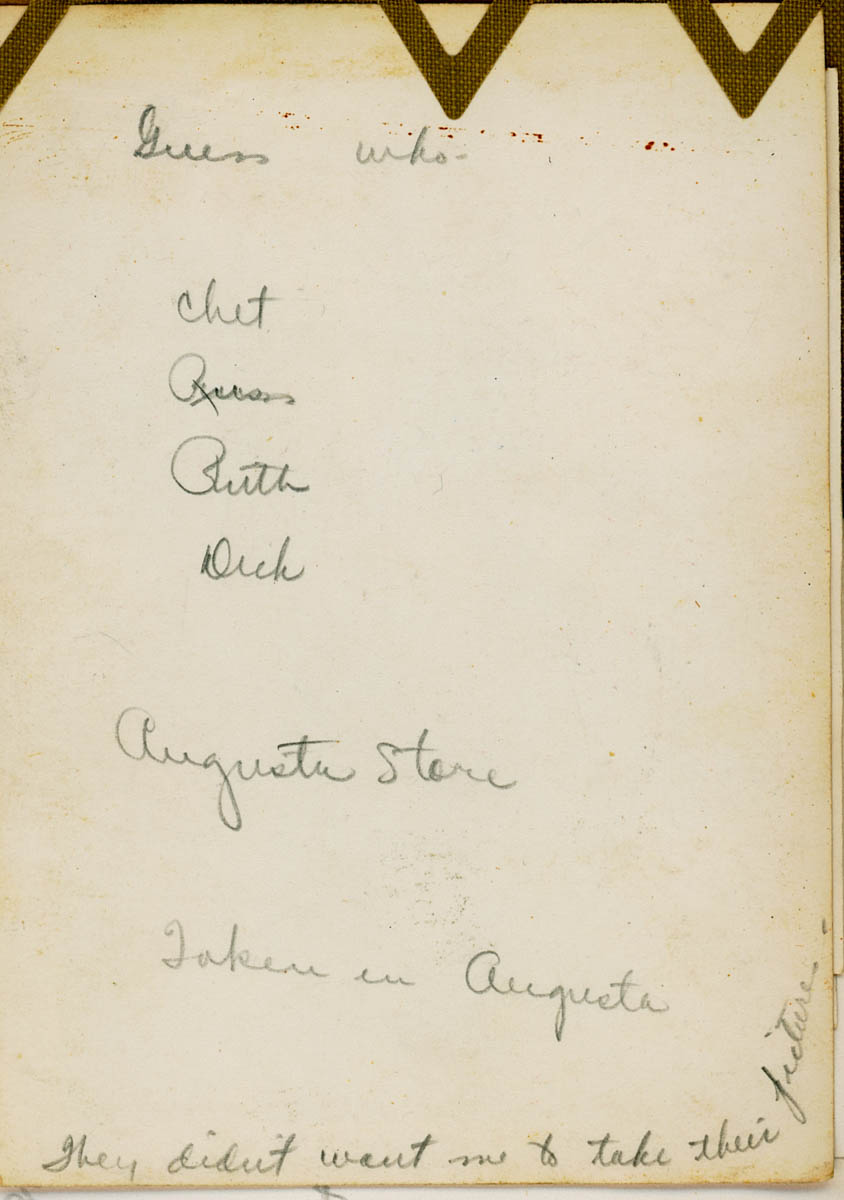 Guess who-
Chet
Russ
Ruth
Dick
Augusta Store
Taken in Augusta
They didn't want me to take their
pictures-